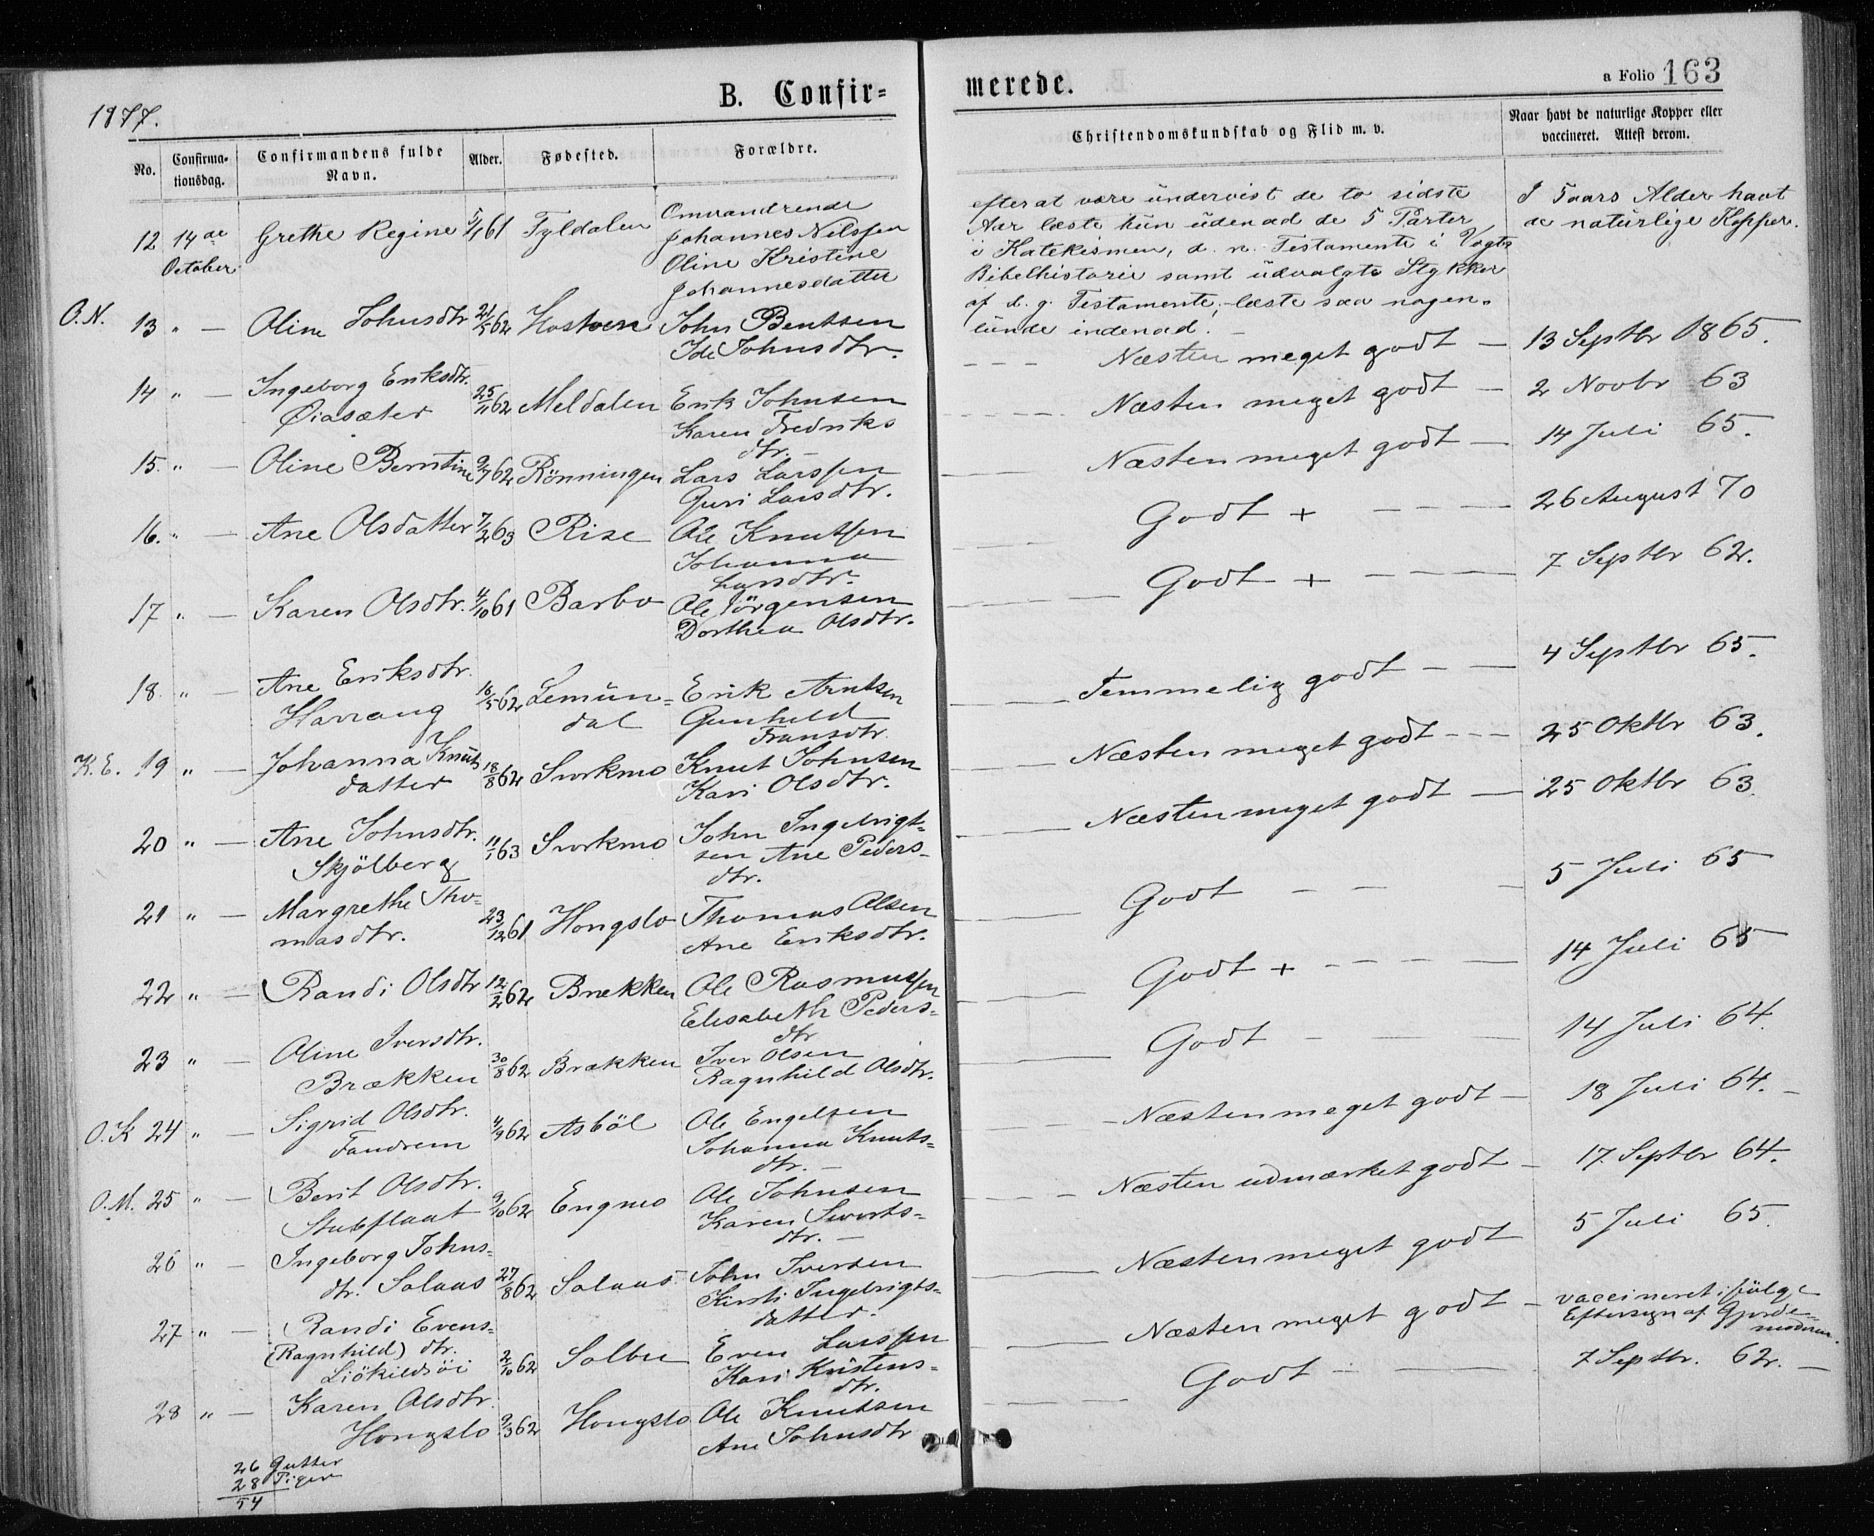 1877.
B. Confir-
merede.
a Folio 163
No.
Confirma-
tionsdag.
Confirmandens fulde
Navn.
Alder.
Fødested.
Forældre.
Christendomskundskab og Flid m. v.
Naar havt de naturlige Kopper eller
vaccineret. Attest derom.
12 14de October Grethe Regine 5/1 61 Tyldalen
Omvandrende
Johannes Nilssen
Oline Kristine
Johannesdatter
efterat være undervist de to sidste
Aar læste hun udenad de 5 Parter
i Katekismen, d. n. Testamente i Vogts
Bibelhistorie samt udvalgte Stykker
af d. g. Testamente, læste saa nogen-
lunde indenad. —
I 5 aars Alder havt
de naturlige Kopper.
O.N. 13 " — Oline Johnsdtr 21/5 62 Hostven John Bentsen
Ide Johnsdtr.
Næsten meget godt — 13 Septbr 1865.
14 " — Ingeborg Eriksdtr.
Øiasæter 25/11 62 Meldalen Erik Johnsen
Karen Fredriks
dtr. —
Næsten meget godt — 2 Novbr 63
15. " — Oline Berntine 9/7 62 Rönningen Lars Larssen
Guri Larsdtr.
Næsten meget godt — 14 Juli 65.
16. " — Ane Olsdatter 7/2 63 Rise Ole Knutssen
Johanna
Larsdtr.
Godt + — 26 August 70
17 " — Karen Olsdtr. 4/10 61 Barbo Ole Jörgensen
Dorthea Olsdtr.
Godt + — 7 Septbr 62.
18. " — Ane Eriksdtr.
Harrang 16/5 62 Lemun=
dal Erik Arntsen
Gunhild
Fransdtr.
Temmelig godt — 4 Septbr 65.
K.E. 19 " — Johanna Knuts
datter 18/8 62 Svorkmo Knut Johnsen
Kari Olsdtr.
Næsten meget godt — 25 Oktbr 63.
20 " — Ane Johnsdtr.
Skjölberg 11/1 63 Svorkmo John Ingebrigt-
sen Ane Peders-
dtr.
Næsten meget godt — 25 Oktbr 63
21 " — Margrethe Tho-
masdtr. 23/12 61 Hongslo Thomas Olsen
Ane Eriksdtr.
Godt — 5 Juli 65
22 " — Randi Olsdtr 12/2 62 Brækken Ole Rasmussen
Elisabeth Peders-
dtr
Godt + — 14 Juli 65
23 " — Oline Iversdtr.
Brækken 30/8 62 Brækken Iver Olsen
Ragnhild Olsdtr.
Godt — 14 Juli 64.
O.K 24 " — Sigrid Olsdtr.
Fandrem 4/9 62 Asböl Ole Engelsen
Johanna Knuts-
dtr. —
Næsten meget godt — 18 Juli 64. —
O.M. 25 " — Berit Olsdtr.
Stubflaat 9/10 62 Engmo Ole Johnsen
Karen Siverts-
dtr. —
Næsten udmærket godt — 17 Septbr 64.
26 " — Ingeborg Johns-
dtr. Solaas 27/8 62 Solaas John Iversen
Kirsti Ingebrigts-
datter
Næsten meget godt 5 Juli 65.
27 " — Randi Evens-
(Ragnhild) dtr.
Liökildsöi 2/10 62 Solbu Even Larssen
Kari Kristens-
dtr.
Næsten meget godt — vaccineret ifølge
Eftersyn af Gjorde-
moderen.
28 " — Karen Olsdtr.
Hongslo 9/3 62 Hongslo Ole Knutsen
Ane Johnsdtr
Godt — 7 Septbr. 62. —
26 Gutter
28 Piger
54